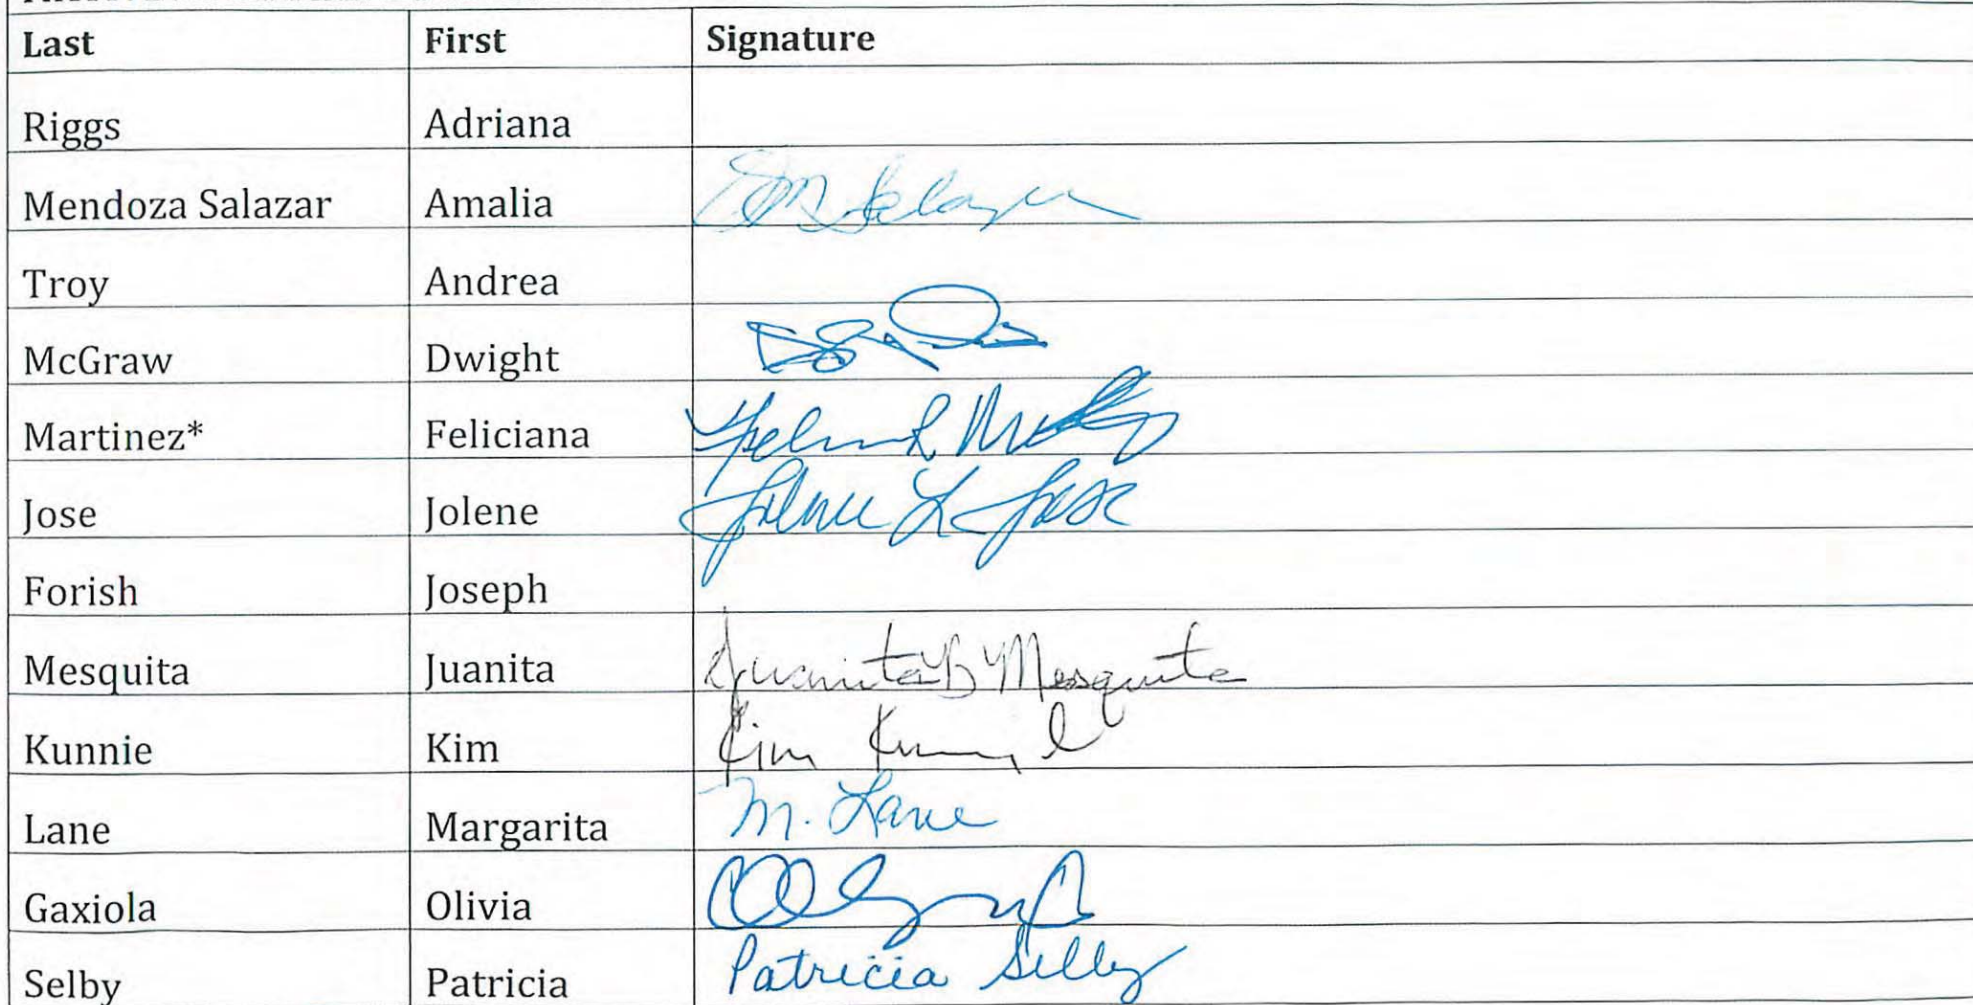 Last First Signature
Riggs Adriana
Mendoza Salazar Amalia Salazar
Troy Andrea
McGraw Dwight
Martinez* Feliciana
Jose Jolene Jolene L Jose
Forish Joseph
Mesquita Juanita Juanita B Mesquita
Kunnie Kim Kim
Lane Margarita M. Lane
Gaxiola Olivia
Selby Patricia Patricia Selby